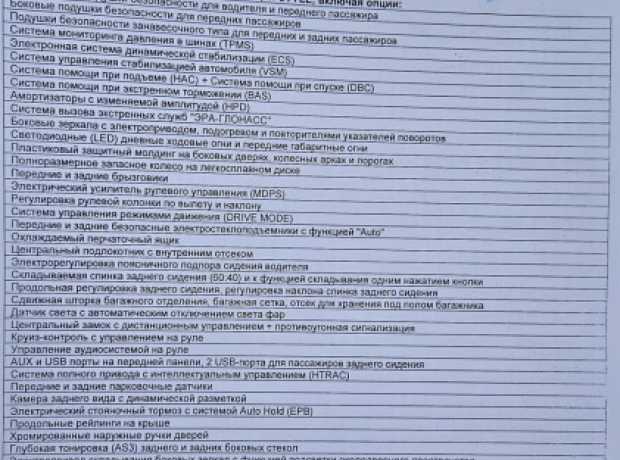 безопасности для водителя и переднего пассажира включая опции:
Боковые подушки безопасности для передних пассажиров
Подушки безопасности занавесочного типа для передних и задних пассажиров
Система мониторинга давления в шинах (TPMS)
Электронная система динамической стабилизации (ECS)
Система управления стабилизацией автомобиле (VSM)
Система помощи при подъеме (HAC) + Система помощи при спуске (DBC)
Система помощи при экстренном торможении (BAS)
Амортизаторы с изменяемой амплитудой (HPD)
Система вызова экстренных служб "ЭРА-ГЛОНАСС"
Боковые зеркала с электроприводом, подогревом и повторителями указателей поворотов
Светодиодные (LED) дневные ходовые огни и передние габаритные огни
Пластиковый защитный молдинг на боковых дверях, колесных арках и порогах
Полноразмерное запасное колесо на легкосплавном диске
Передние и задние брызговики
Электрический усилитель рулевого управления (MDPS)
Регулировка рулевой колонки по вылету и наклону
Система управления режимами движения (DRIVE MODE)
Передние и задние безопасные электростеклоподъемники с функцией "Auto"
Охлаждаемый перчаточный ящик
Центральный подлокотник с внутренним отсеком
Электрорегулировка поясничного подпора сидения водителя
Складываемая спинка заднего сидения (60:40) и к функцией складывания одним нажатием кнопки
Продольная регулировка заднего сидения, регулировка наклона спинка заднего сидения
Сдвижная шторка багажного отделения, багажная сетка, отсек для хранения под полом багажника
Датчик света с автоматическим отключением света фар
Центральный замок с дистанционным управлением + противоугонная сигнализация
Круиз-контроль с управлением на руле
Управление аудиосистемой на руле
AUX и USB порты на передней панели, 2 USB-порта для пассажиров заднего сидения
Система полного привода с интеллектуальным управлением (HTRAC)
Передние и задние парковочные датчики
Камера заднего вида с динамической разметкой
Электрический стояночный тормоз с системой Auto Hold (EPB)
Продольные рейлинги на крыше
Хромированные наружные ручки дверей
Глубокая тонировка (AS3) заднего и задних боковых стекол